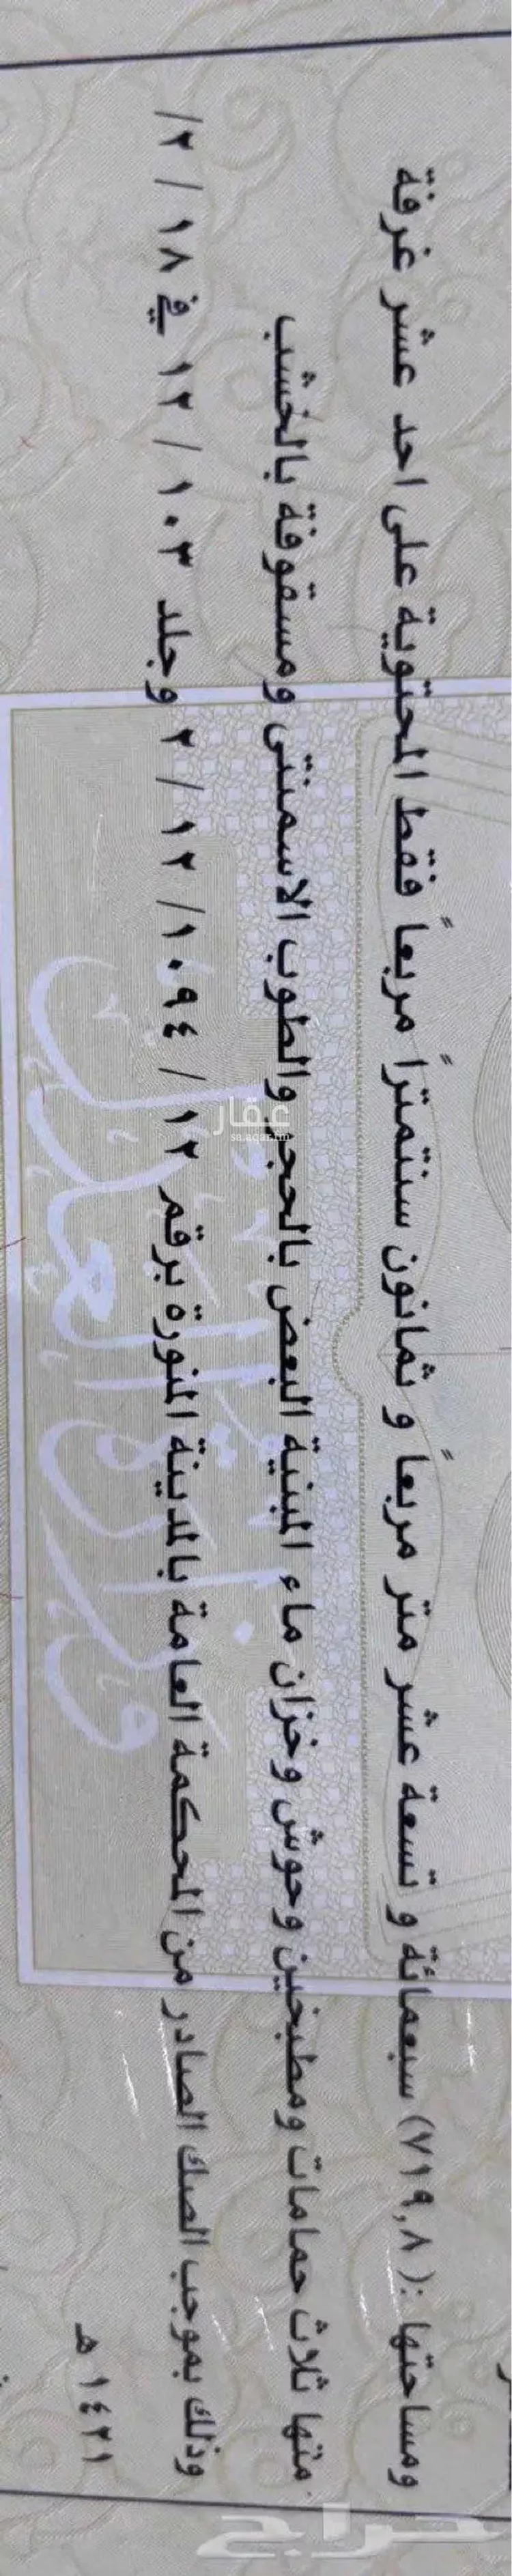 ومساحتها :( ٧١٩,٨) سبعمائة و تسعة عشر متر مربعاً و ثمانون سنتمتراً مربعاً فقط المحتوية على احد عشر غرفة
منها ثلاث حمامات ومطبخين وحوش وخزان ماء المبنية البعض بالحجر والطوب الاسمنتى ومسقوفة بالخشب
وذلك بموجب الصك الصادر من المحكمة العامة بالمدينة المنورة برقم ١٢ / ١٠٩٤/ ١٢ / ٢ وجلد ١٠٣ / ١٢ في ١٨ / ٢ /
١٤٢١ هـ
وزارة العدل
عقار
sa.aqar.fm
حراج